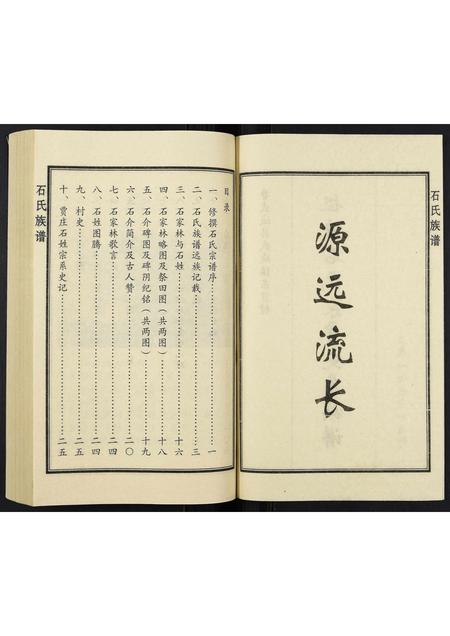 石氏族谱
源远流长
目录
一、修撰石氏宗谱序……一
二、石氏族谱远族记载……三
三、石家林与石姓……十六
四、石家林略图及祭田图(共两图)……十八
五、石介碑图及碑阴纪铭(共两图)……十九
六、石介简介及古人赞……二〇
七、石家林歌言……二四
八、石姓图腾……二四
九、村史……二五
十、贾庄石姓宗系史记……二五
石氏族谱